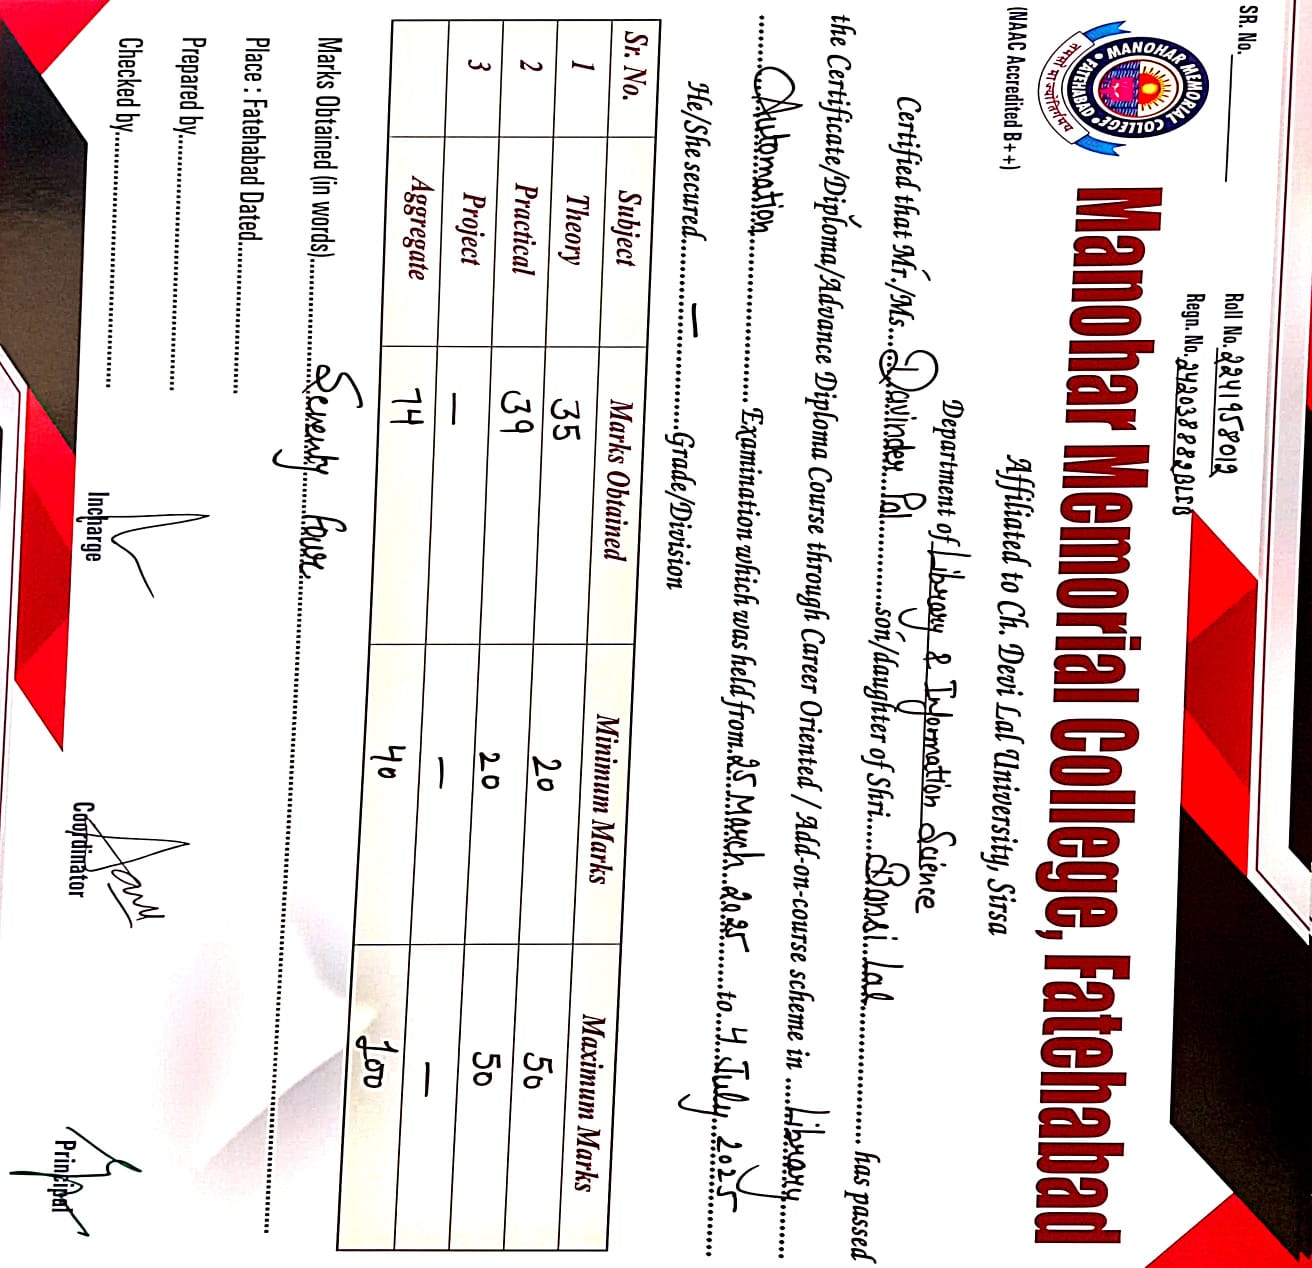 SR. No.
Roll No. 2241958012
Regn. No. 242038882BLIB
MANOHAR MEMORIAL COLLEGE
FATEHABAD
(NAAC Accredited B++)
Manohar Memorial College, Fatehabad
Affiliated to Ch. Devi Lal University, Sirsa
Department of Library & Information Science
Certified that Mr./Ms. Davinder Pal son/daughter of Shri Bansi Lal has passed
the Certificate/Diploma/Advance Diploma Course through Career Oriented / Add-on-course scheme in Library
Automation Examination which was held from 25 March 2025 to 4 July 2025
He/She secured — Grade/Division
Sr. No. Subject Marks Obtained Minimum Marks Maximum Marks
1 Theory 35 20 50
2 Practical 39 20 50
3 Project — — —
Aggregate 74 40 100
Marks Obtained (in words) Seventy four
Place : Fatehabad Dated
Prepared by
Checked by
Incharge Coordinator Principal